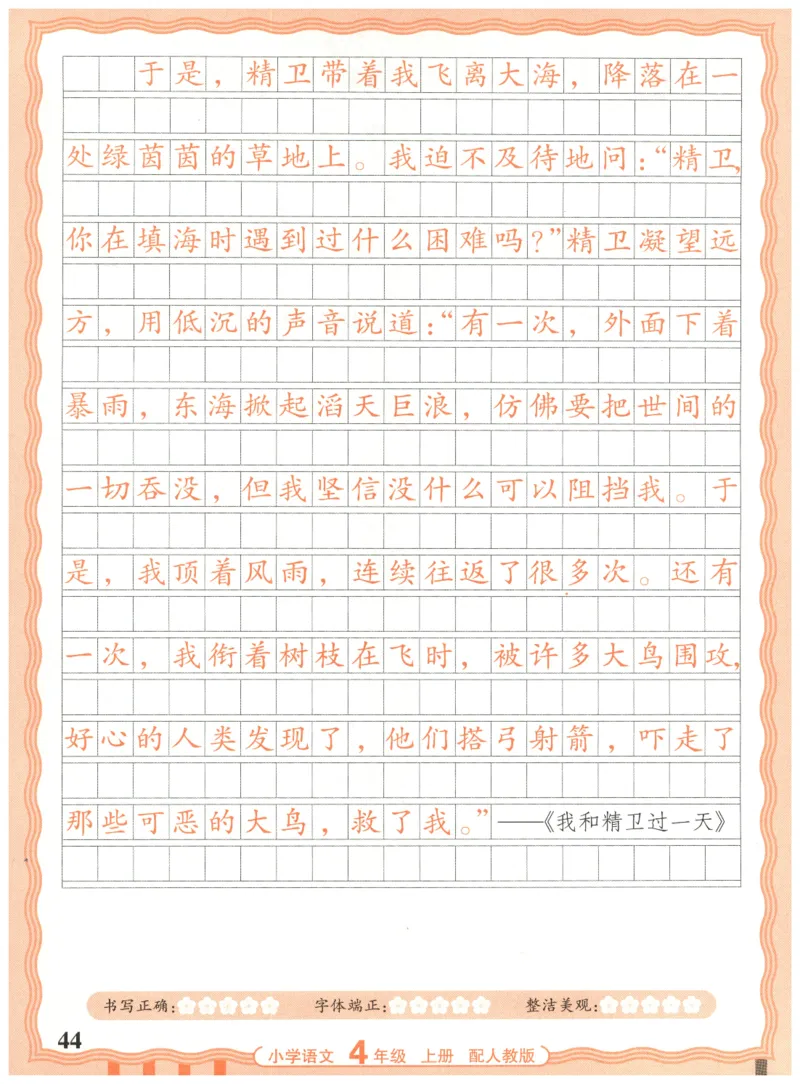 于是，精卫带着我飞离大海，降落在一
处绿茵茵的草地上。我迫不及待地问：“精卫，
你在填海时遇到过什么困难吗？”精卫凝望远
方，用低沉的声音说道：“有一次，外面下着
暴雨，东海掀起滔天巨浪，仿佛要把世间的
一切吞没，但我坚信没什么可以阻挡我。于
是，我顶着风雨，连续往返了很多次。还有
一次，我衔着树枝在飞时，被许多大鸟围攻，
好心的人类发现了，他们搭弓射箭，吓走了
那些可恶的大鸟，救了我。”——《我和精卫过一天》
书写正确： 字体端正： 整洁美观：
44
小学语文 4年级 上册 配人教版